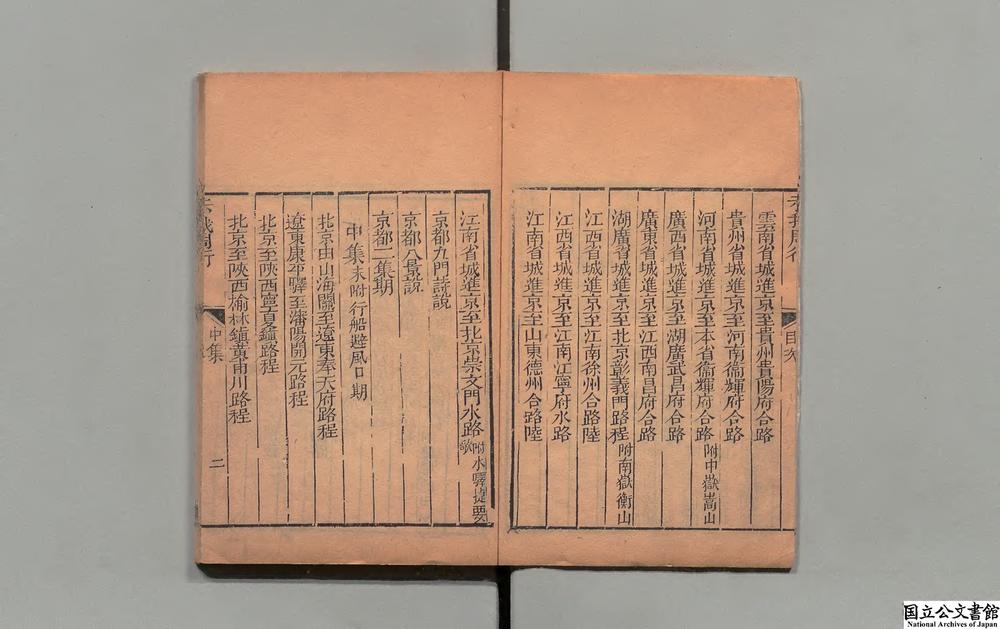 雲南省城進京至貴州貴陽府合路
貴州省城進京至河南衞輝府合路
河南省城進京至本省衞輝府合路 附中嶽嵩山
廣西省城進京至湖廣武昌府合路
廣東省城進京至江西南昌府合路
湖廣省城進京至北京彰義門路程 附南嶽衡山
江西省城進京至江南徐州合路陸
江西省城進京至江南江寧府水路
江南省城進京至山東德州合路陸
江南省城進京至北京崇文門水路 附水驛捷要歌
京都九門詩說
京都八景說
京都二集期
中集 末附行船避風口期
北京由山海關至遼東奉天府路程
遼東康平驛至瀋陽開元路程
北京至陝西寧夏鎭路程
北京至陝西榆林鎭黃甫川路程
中集
二
国立公文書館
National Archives of Japan